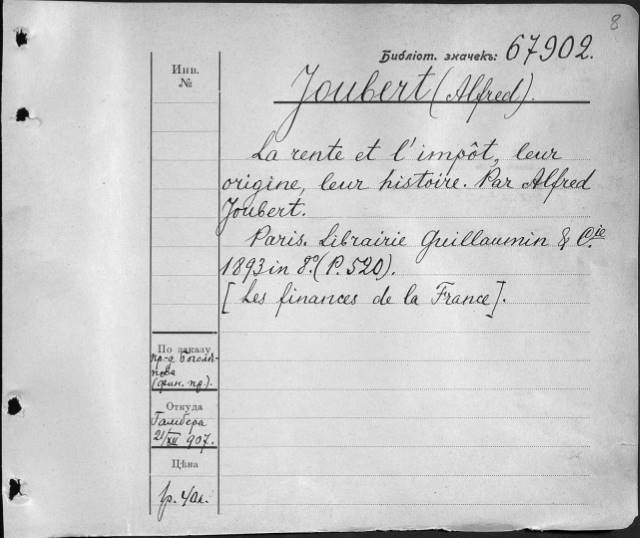 8
Библіот. значекъ: 67902.
Инв.
№
Joubert (Alfred).
La rente et l'impôt, leur
origine, leur histoire. Par Alfred
Joubert.
Paris. Librairie Guillaumin & Cie.
1893 in 8º. (P. 520).
[Les finances de la France].
По заказу
пр-а Боголѣ-
пова
(фин. пр.).
Откуда
Гамбера
21/XII 907.
Цѣна